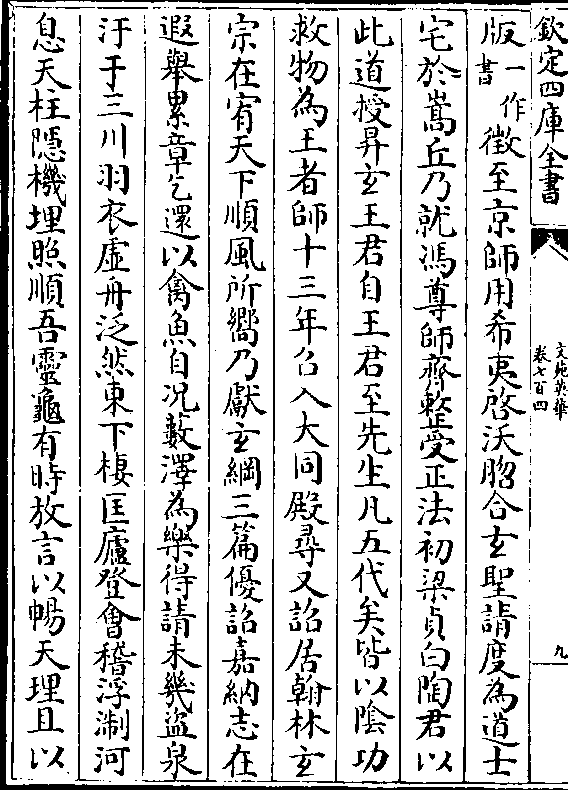 欽定四庫全書
文苑英華
卷七百四
九
版一作書徵至京師用希夷啓沃脗合玄聖請度為道士
宅於嵩丘乃就馮尊師齊整受正法初梁貞白陶君以
此道授昇玄王君自王君至先生凡五代矣皆以隂功
救物為王者師十三年召入大同殿尋又詔居翰林玄
宗在宥天下順風所嚮乃獻玄綱三篇優詔嘉納志在
遐舉累章乞還以禽魚自况藪澤為樂得請未幾盜泉
汙于三川羽衣虛舟泛然東下棲匡廬登會稽浮淛河
息天柱隱機埋照順吾靈龜有時放言以暢天理且以